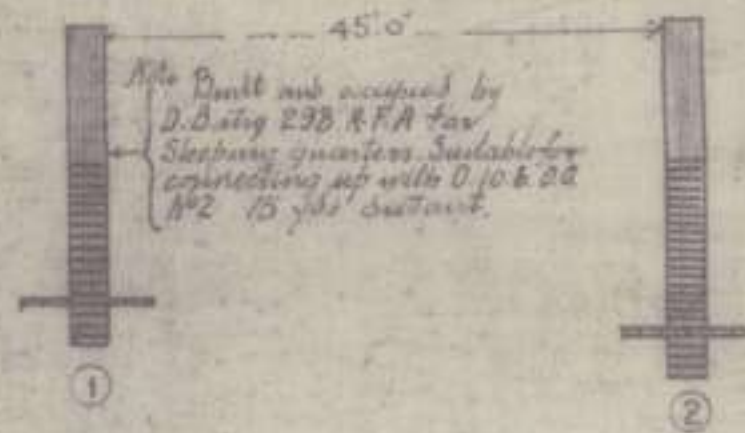 45' 0"
Note Built and occupied by
D. Batry 298 R.F.A for
Sleeping quarters. Suitable for
connecting up with D. 10. 6.
Nº2 15 yds distant.
1
2